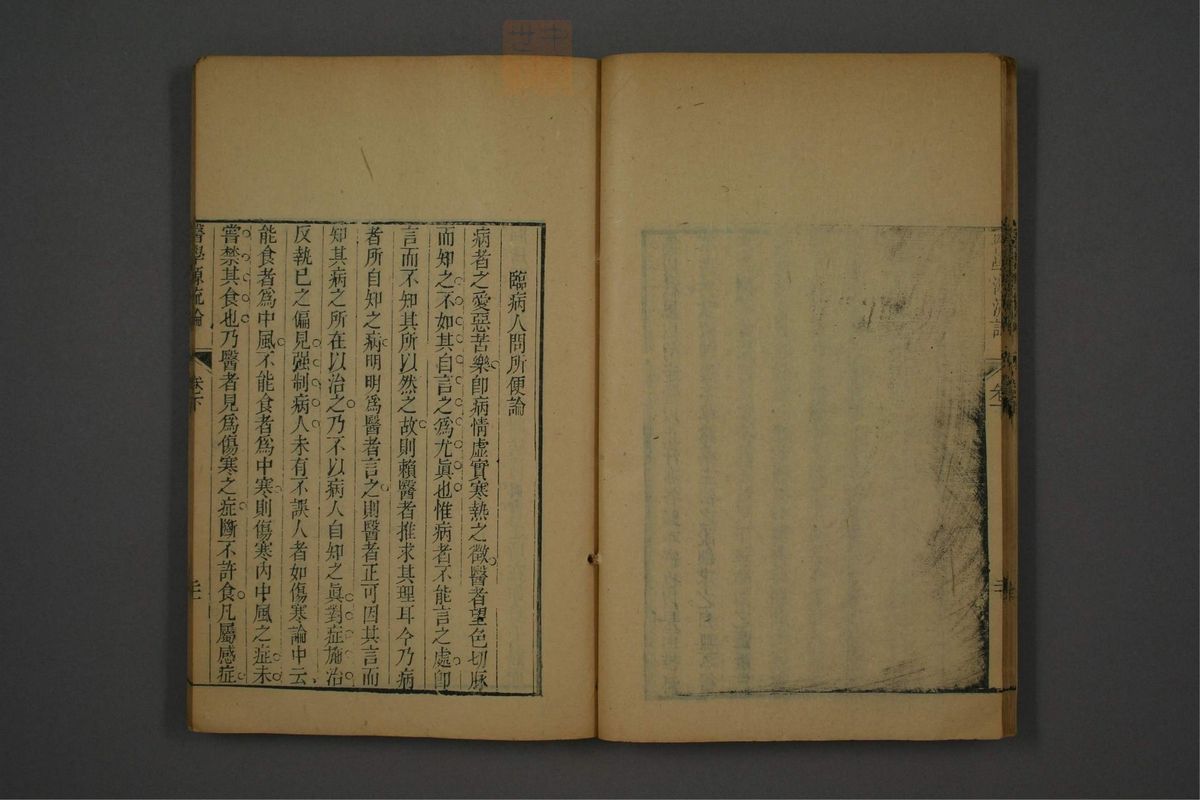 醫學源流論 卷
臨病人問所便論
病者之愛惡苦樂卽病情虛實寒熱之徵醫者望色切脉
而知之不如其自言之爲尤眞也惟病者不能言之處卽
言而不知其所以然之故則賴醫者推求其理耳今乃病
者所自知之病明明爲醫者言之則醫者正可因其言而
知其病之所在以治之乃不以病人自知之眞對症施治
反執已之偏見强制病人未有不誤人者如傷寒論中云
能食者爲中風不能食者爲中寒則傷寒內中風之症未
嘗禁其食也乃醫者見爲傷寒之症斷不許食凡屬感症
醫學源流論 卷下